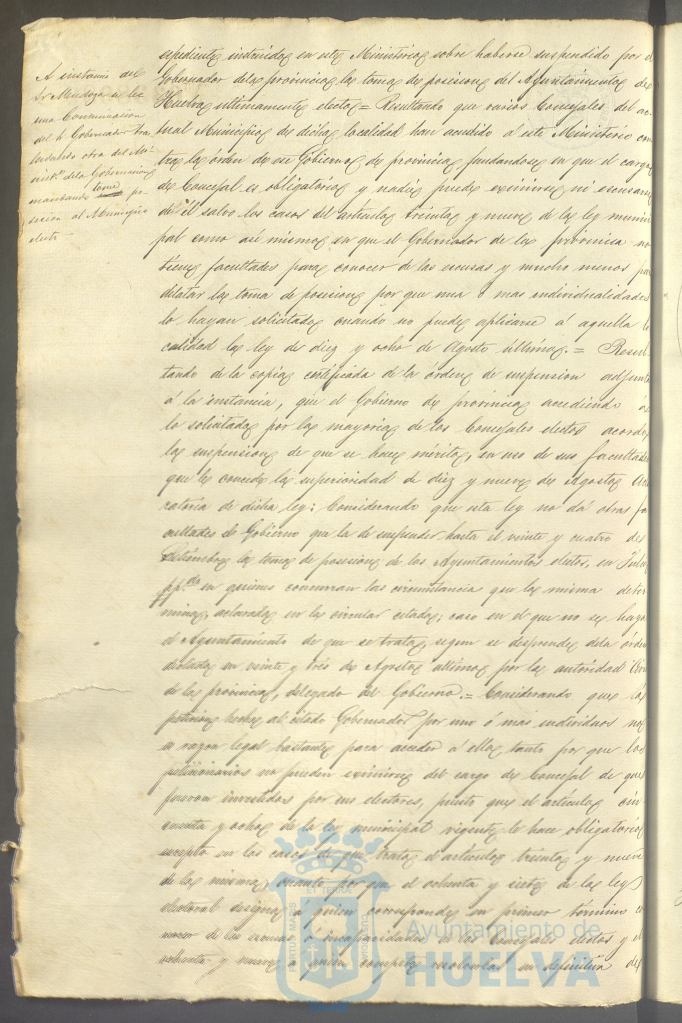 A instancia del
Sr Mendoza se lee
una Comunicacion
del Sr Gobernador tras-
ladando otra del Mi-
nistº dela Gobernacion
mandando tome po-
sesion al Municipio
electo
espediente instruido en este Ministerio sobre haberse suspendido por el
Gobernador dela provincia la toma de posesion del Ayuntamiento de
Huelva ultimamente electo = Resultando que varios Concejales del ac-
tual Municipio de dicha localidad han acudido a este Ministerio con-
tra la órden de ese Gobierno de provincia fundandose en que el cargo
de Concejal es obligatorio y nadie puede eximirse ni escusarse
de él salvo los casos del articulo treinta y nueve de la ley munici-
pal como asi mismo en que el Gobernador de la provincia no
tiene facultades para conocer de las escusas y mucho menos para
dilatar la toma de posesion por que una o mas individualidades
lo hayan solicitado cuando no puede aplicarse á aquella lo-
calidad la ley de diez y ocho de Agosto último. = Resul-
tando de la copia certificada de la órden de suspension adjunta
á la instancia, que el Gobierno de provincia accediendo á
lo solicitado por la mayoria de los Concejales electos acordó
la suspension de que se hace mérito, en uso de sus facultades
que le concede la superioridad de diez y nueve de Agosto acla-
ratoria de dicha ley: Considerando que esta ley no dá otras fa-
cultades de Gobierno que la de suspender hasta el veinte y cuatro de
Setiembre la toma de posesion de los Ayuntamientos electos en Julio
ppdo en quienes concurran las circunstancia que la misma deter-
mina, aclarada en la circular citada; caso en el que no se haya
el Ayuntamiento de que se trata, segun se desprende dela órden
dictada en veinte y trés de Agosto último por la autoridad
de la provincia, delegado del Gobierno. = Considerando que la
peticion hecha al citado Gobernador por uno ó mas individuos no
es razon legal bastante para acceder á ella, tanto por que los
peticionarios no pueden eximirse del cargo de Concejal de que
fueron investidos por sus electores, puesto que el artículo cin-
cuenta y ocho de la ley municipal vigente le hace obligatorio
escepto en los casos de que trata el artículo treinta y nueve
de la misma, cuanto por que el ochenta y siete de la ley
electoral designa á quien corresponde en primer término co-
nocer de las escusas é incapacidades de los Concejales electos y el
ochenta y nueve á quien compete resolverlas en definitiva de
Ayuntamiento de
HUELVA